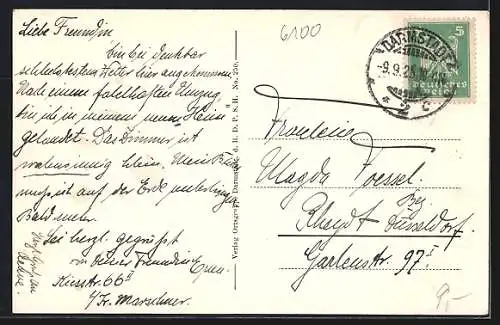 Liebe Freundin
bin bei denkbar
schlechtestem Wetter hier angekommen.
Nach einem fabelhaften Umzug
bin ich in meinem neuen Heim
gelandet. Das Zimmer ist
wahnsinnig klein. Mein
muss ist auf der Erde
Bald mehr.
Sei herzl. gegrüsst
von Deiner Freundin
Kiesstr. 66 II
b/Fr. Marschner
6100
DARMSTADT
-9.9.25
* 2 c
5
Deutsches
Reich
Fräulein
Magda Foessel.
Rheydt Bez. Düsseldorf.
Gartenstr. 97 I
9,-